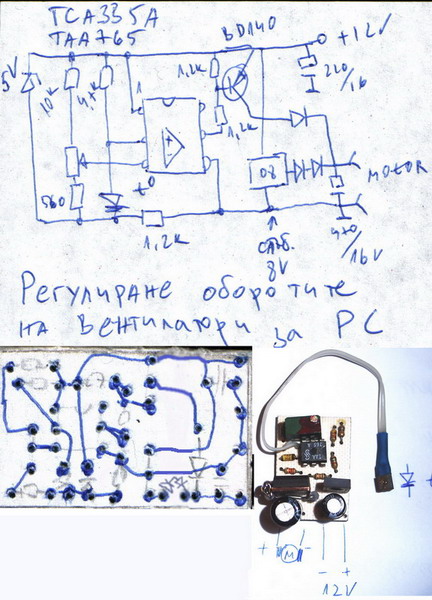 TCA335A
TAA765
BD140
+12V
5V
10k
4,7k
1,2k
1
220/16
1,2k
+
-
560
t°
08
MOTOR
1,2k
стаб.
8V
470/16V
Регулиране оборотите
на вентилатори за PC
+ M -
- +
12V